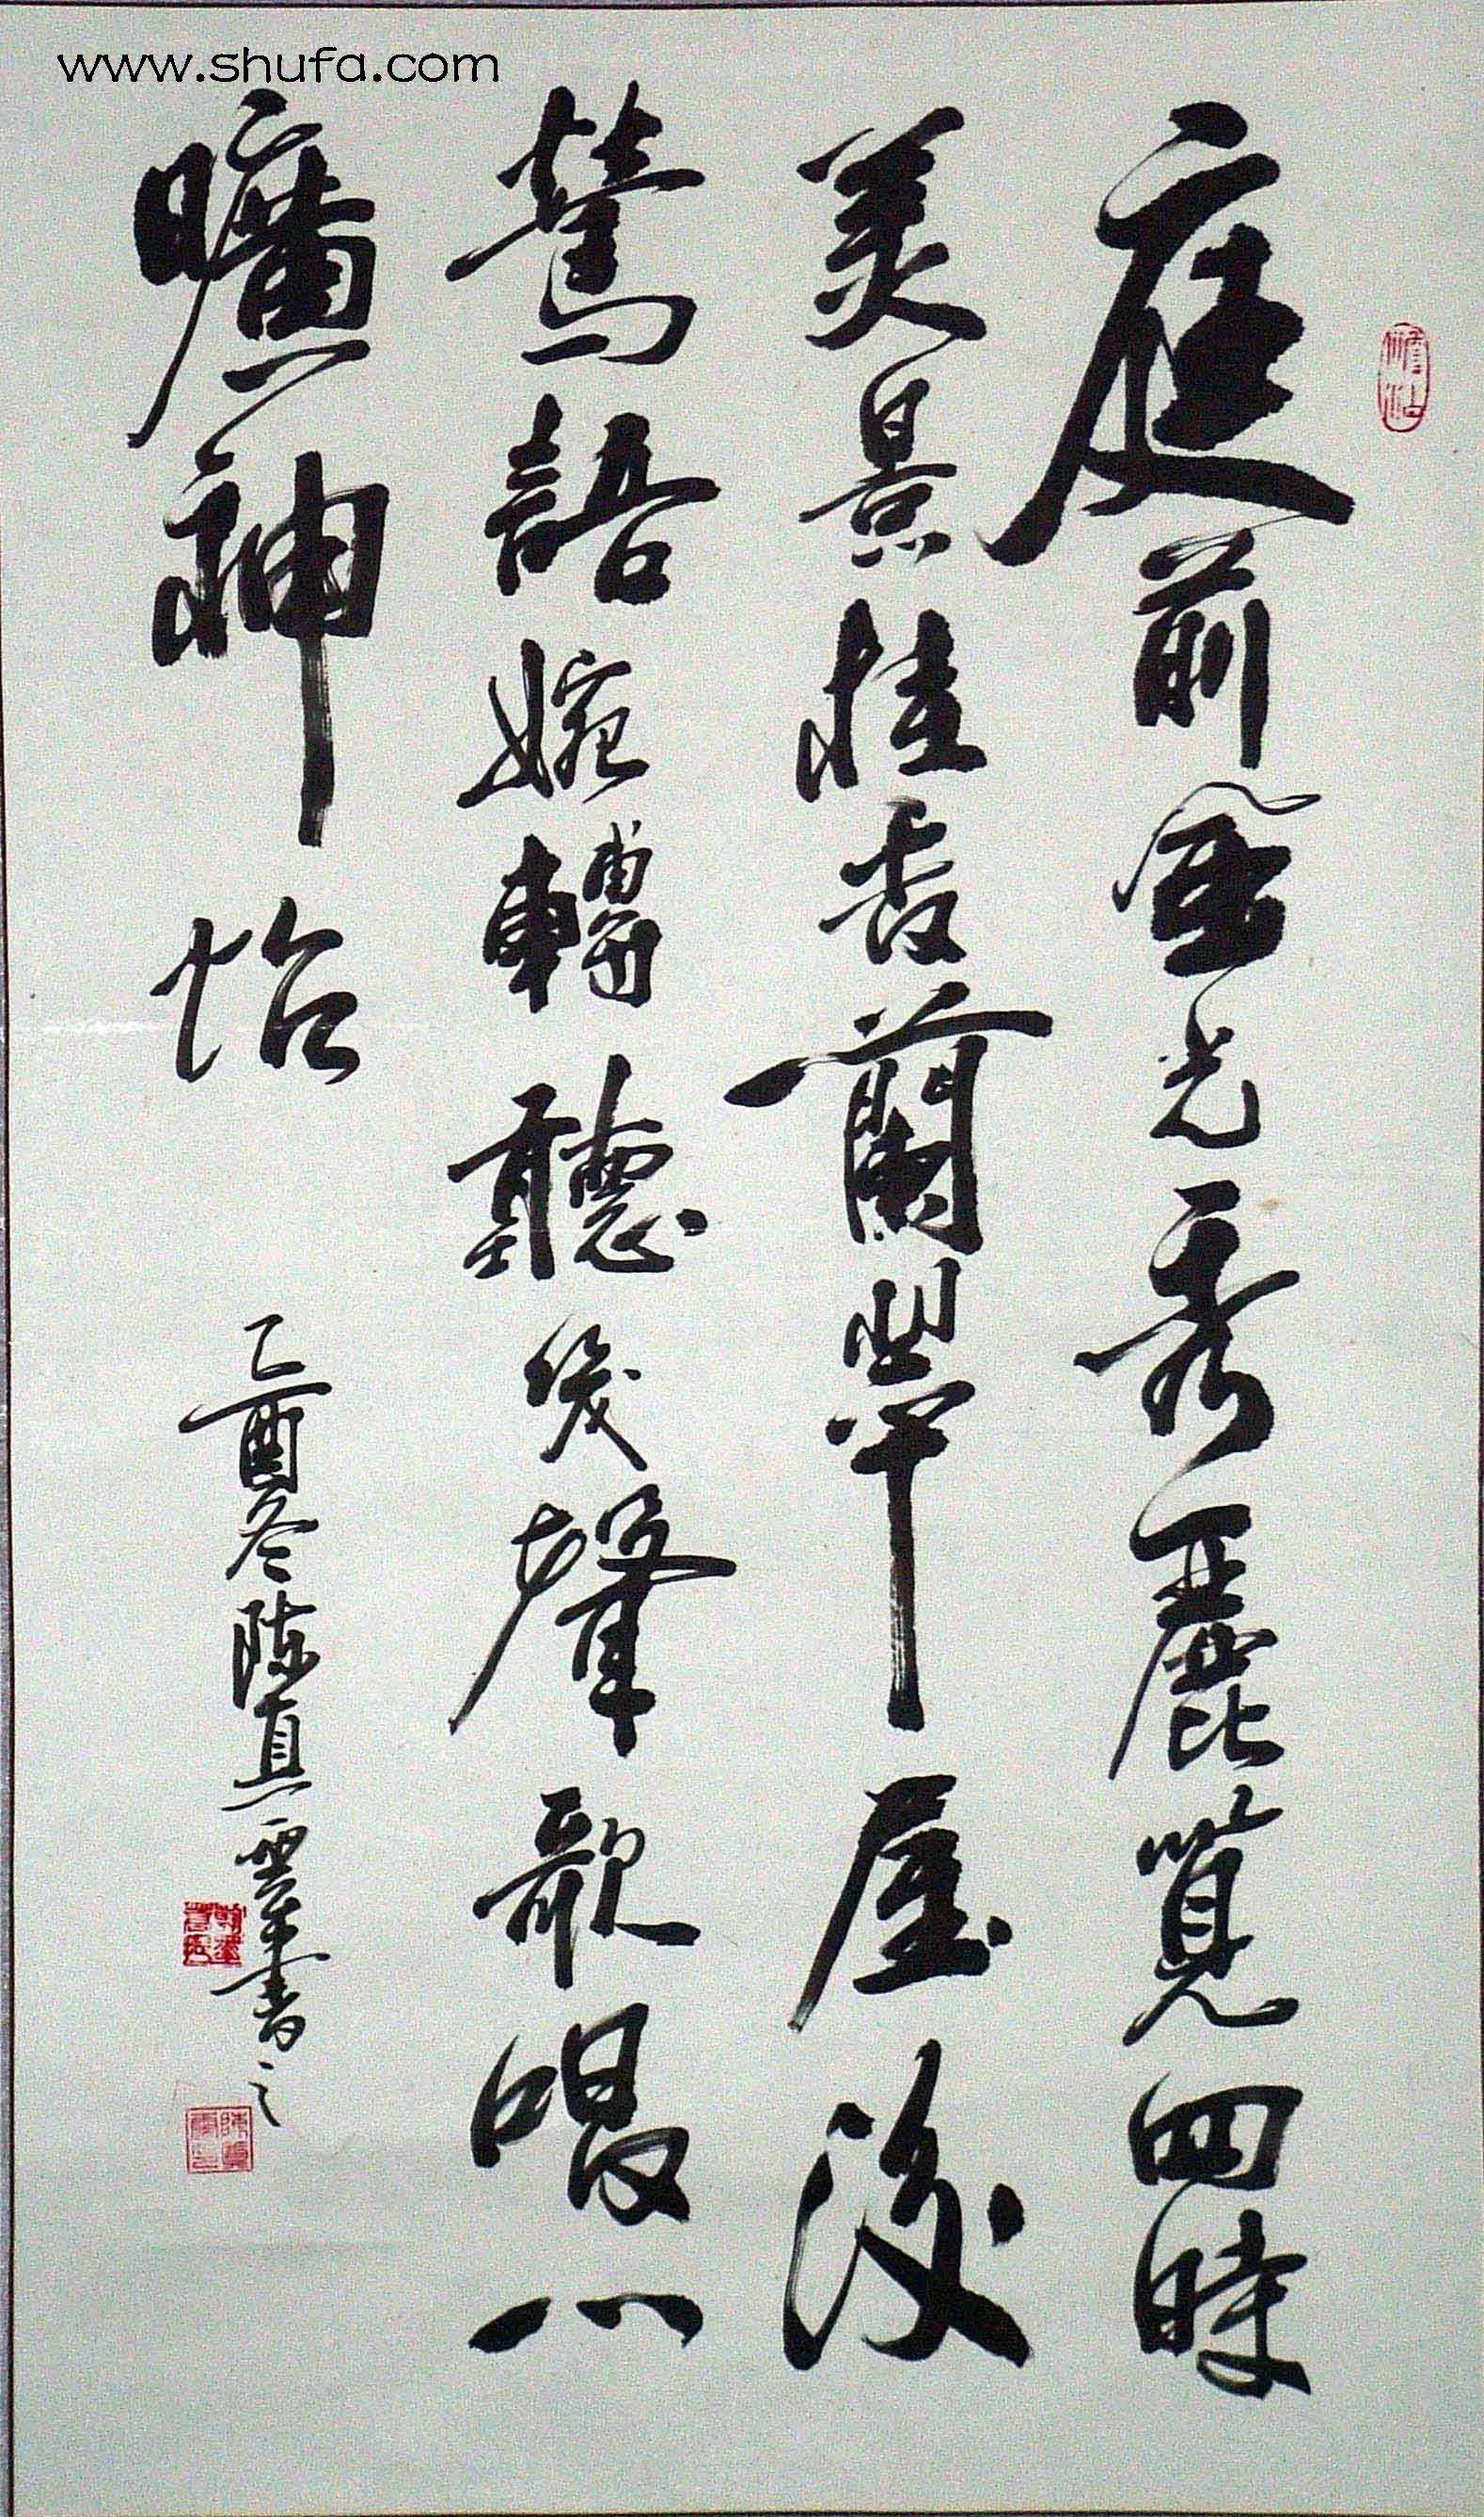 www.shufa.com
庭前風光秀麗覽四時
美景桂香蘭翠屋後
鶯語婉轉聽幾聲歌唱心
曠神怡
乙酉冬陳真平書之